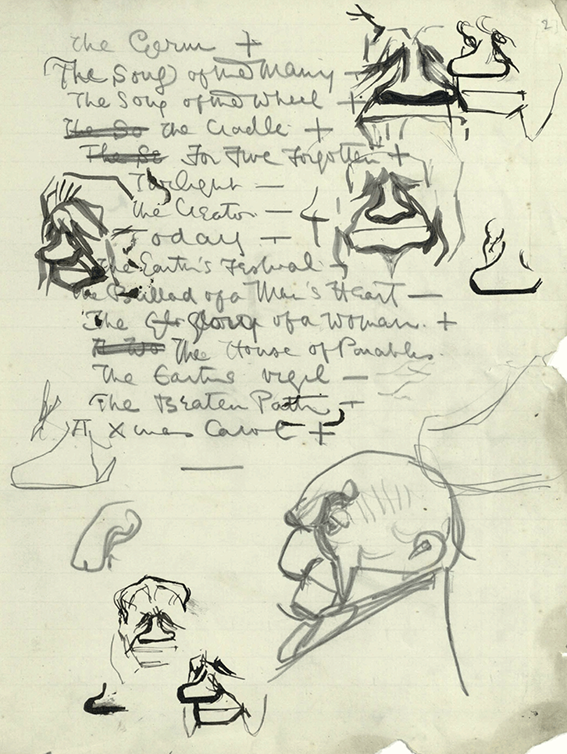 2
The Germ +
(The Song) of the Many —
The Song of the Wheel +
The So The Cradle +
The So For Five Forgotten +
Twilight —
The Creator —
Today —
The Earth's Festival —
The Ballad of a Man's Heart —
The Glo Glory of a Woman. +
The House of Parables.
The Earth's Vigil —
The Beaten Path —
A Xmas Carol +